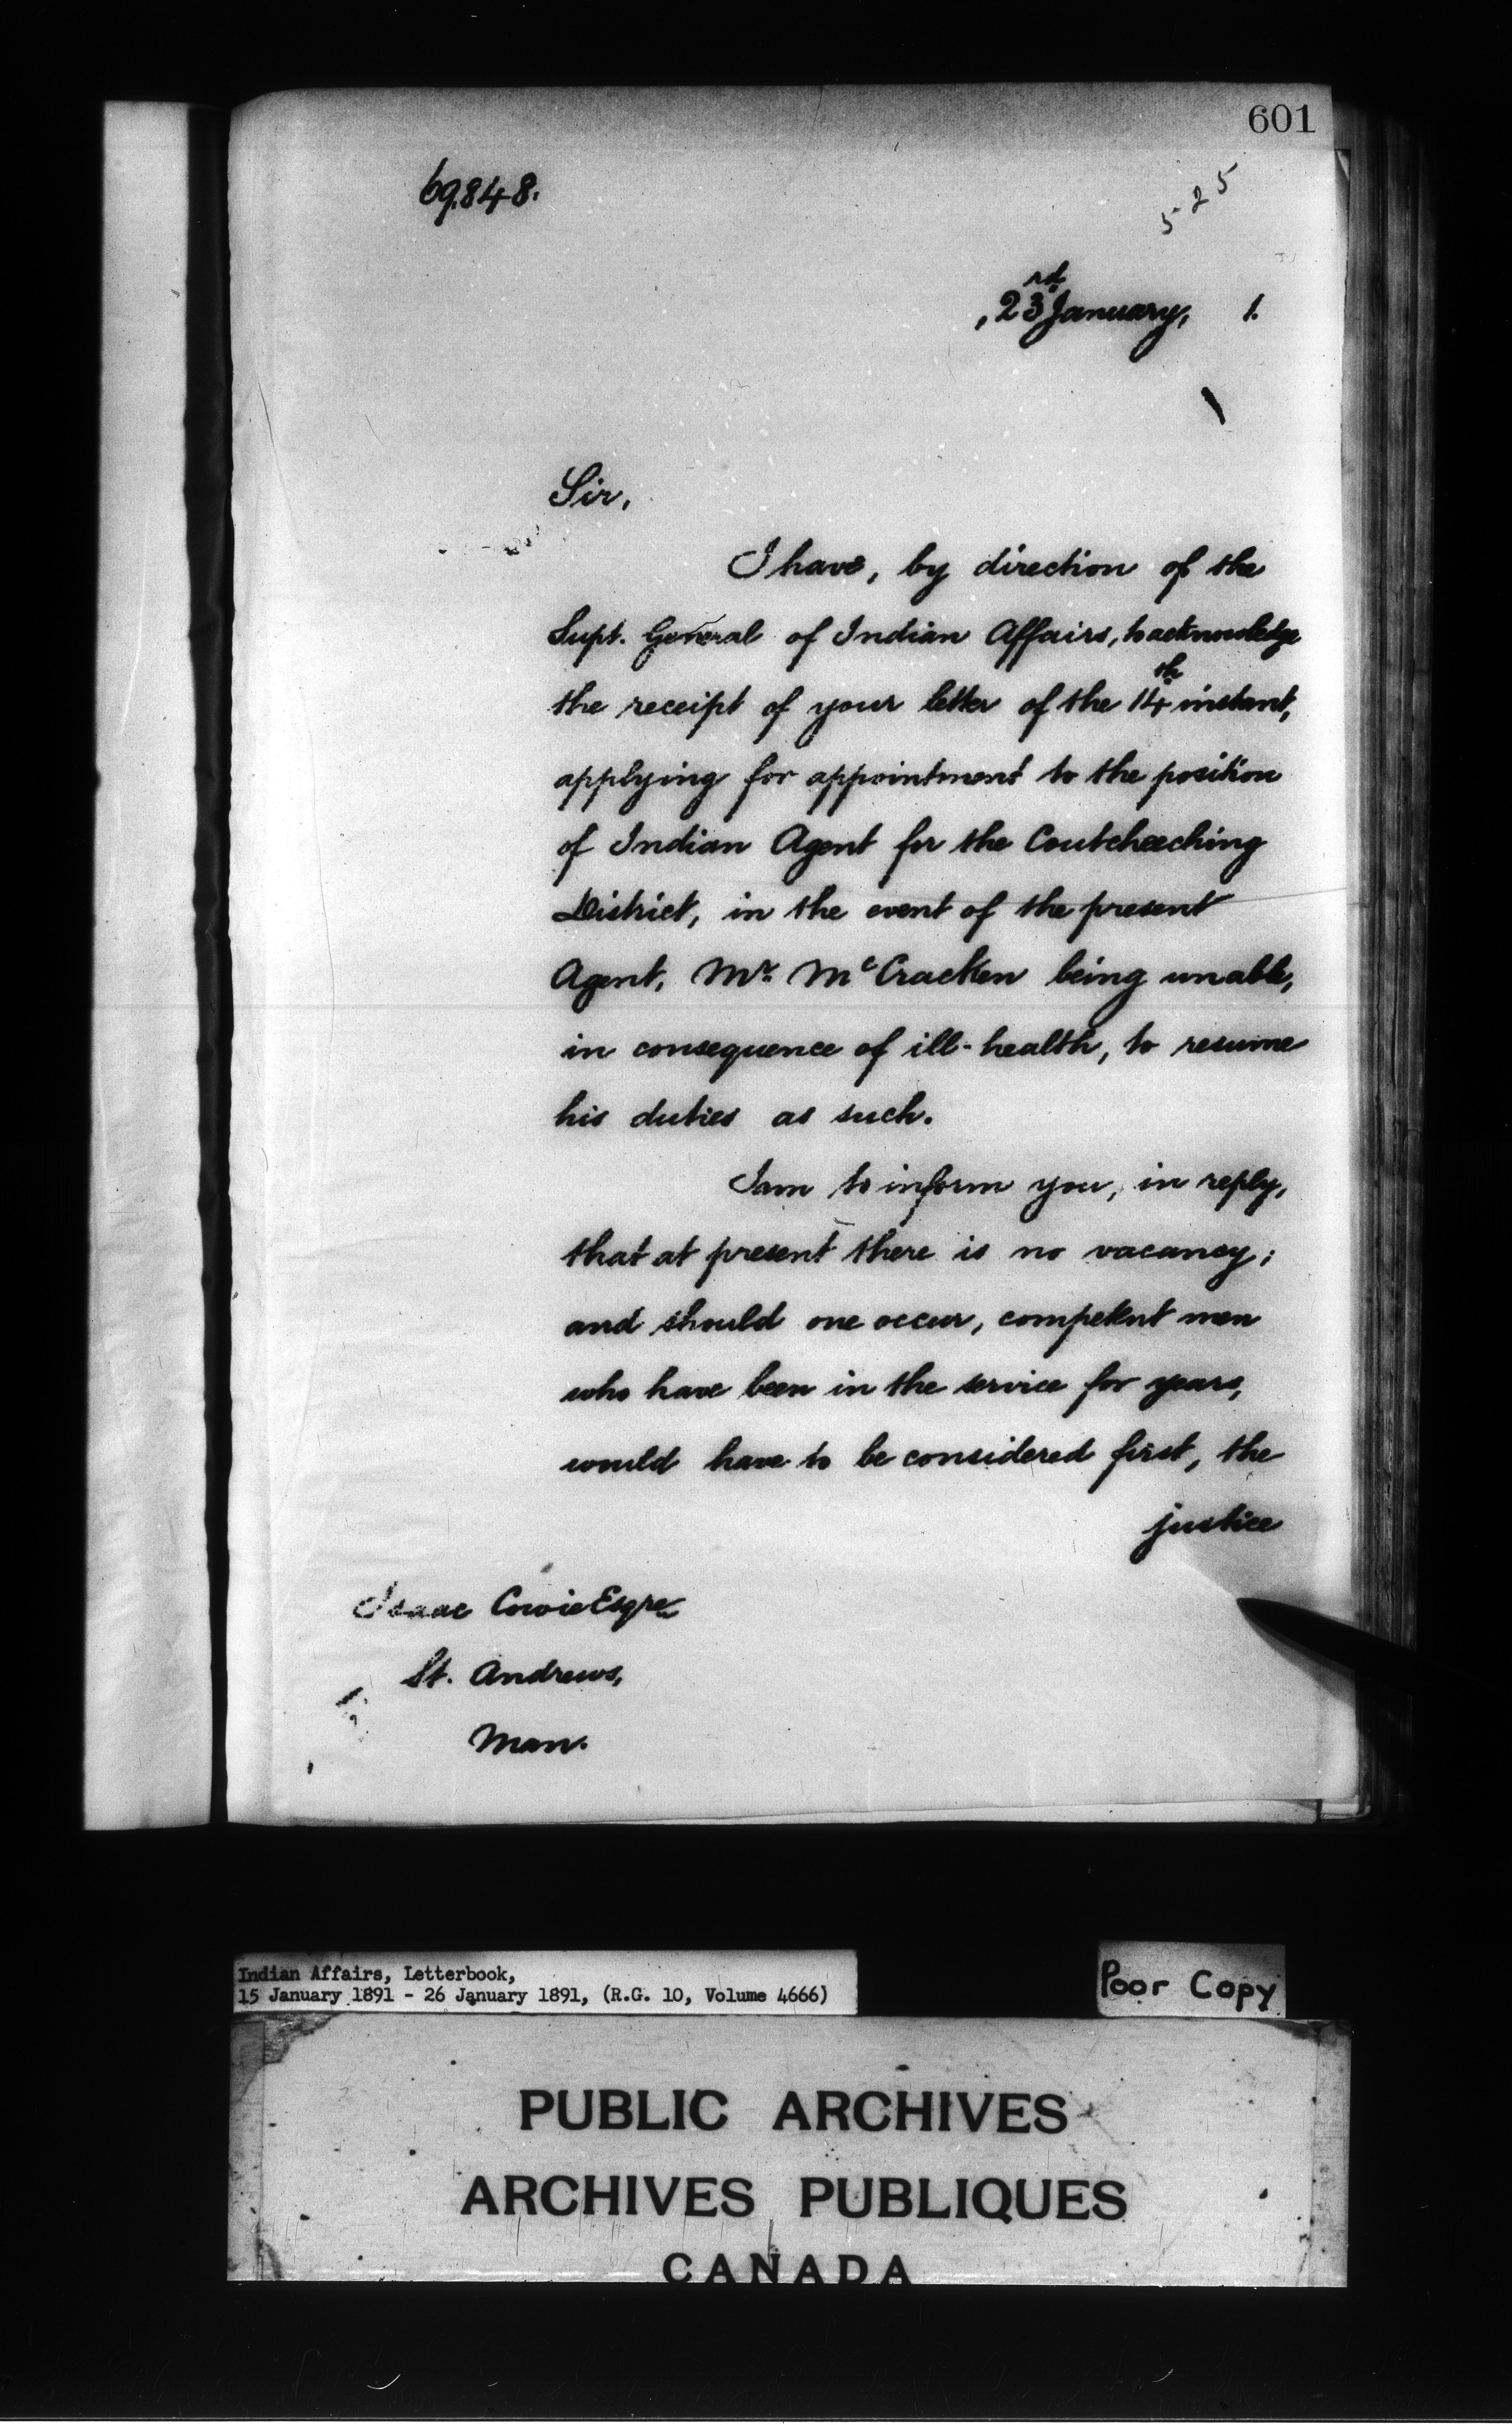 601
69.848.
525
, 23rd January, 1.
Sir,
I have, by direction of the
Supt. General of Indian Affairs, to acknowledge
the receipt of your letter of the 14th instant,
applying for appointment to the position
of Indian Agent for the Coutcheeching
District, in the event of the present
Agent, Mr. McCracken being unable,
in consequence of ill-health, to resume
his duties as such.
I am to inform you, in reply,
that at present there is no vacancy;
and should one occur, competent men
who have been in the service for years,
would have to be considered first, the
justice
Isaac Cowie Esqre
St. Andrews,
Man.
Indian Affairs, Letterbook,
15 January 1891 - 26 January 1891, (R.G. 10, Volume 4666)
Poor Copy
PUBLIC ARCHIVES
ARCHIVES PUBLIQUES
CANADA